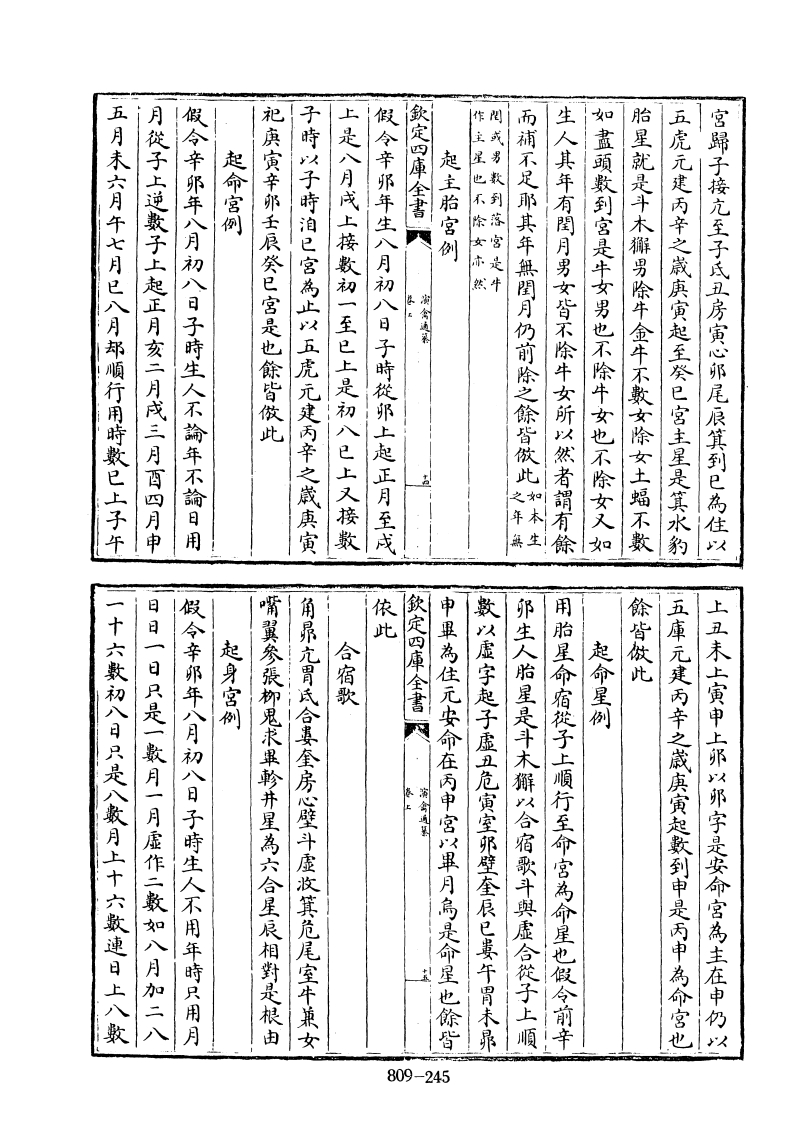 宮歸子接亢至子氐丑房寅心卯尾辰箕到巳為住以
五虎元建丙辛之歲庚寅起至癸巳宮主星是箕水豹
胎星就是斗木獬男除牛金牛不數女除女土蝠不數
如盡頭數到宮是牛女男也不除牛女也不除女又如
生人其年有閏月男女皆不除牛女所以然者謂有餘
而補不足耶其年無閏月仍前除之餘皆倣此如本生
之年無
閏或男數到落宮是牛
作主星也不除女亦然
起主胎宮例
欽定四庫全書
演禽通纂
卷上
十四
假令辛卯年生八月初八日子時從卯上起正月至戌
上是八月戌上接數初一至巳上是初八巳上又接數
子時以子時洎巳宮為止以五虎元建丙辛之歲庚寅
祀庚寅辛卯壬辰癸巳宮是也餘皆倣此
起命宮例
假令辛卯年八月初八日子時生人不論年不論日用
月從子上逆數子上起正月亥二月戌三月酉四月申
五月未六月午七月巳八月却順行用時數巳上子午
上丑未上寅申上卯以卯字是安命宮為主在申仍以
五庫元建丙辛之歲庚寅起數到申是丙申為命宮也
餘皆倣此
起命星例
用胎星命宿從子上順行至命宮為命星也假令前辛
卯生人胎星是斗木獬以合宿歌斗與虛合從子上順
數以虛字起子虛丑危寅室卯壁奎辰巳婁午胃未昴
申畢為住元安命在丙申宮以畢月烏是命星也餘皆
欽定四庫全書
演禽通纂
卷上
十五
依此
合宿歌
角昴亢胃氐合婁奎房心壁斗虛收箕危尾室牛兼女
嘴翼參張柳鬼求畢軫井星為六合星辰相對是根由
起身宮例
假令辛卯年八月初八日子時生人不用年時只用月
日日一日只是一數月一月虛作二數如八月加二八
一十六數初八日只是八數月上十六數連日上八數
809-245